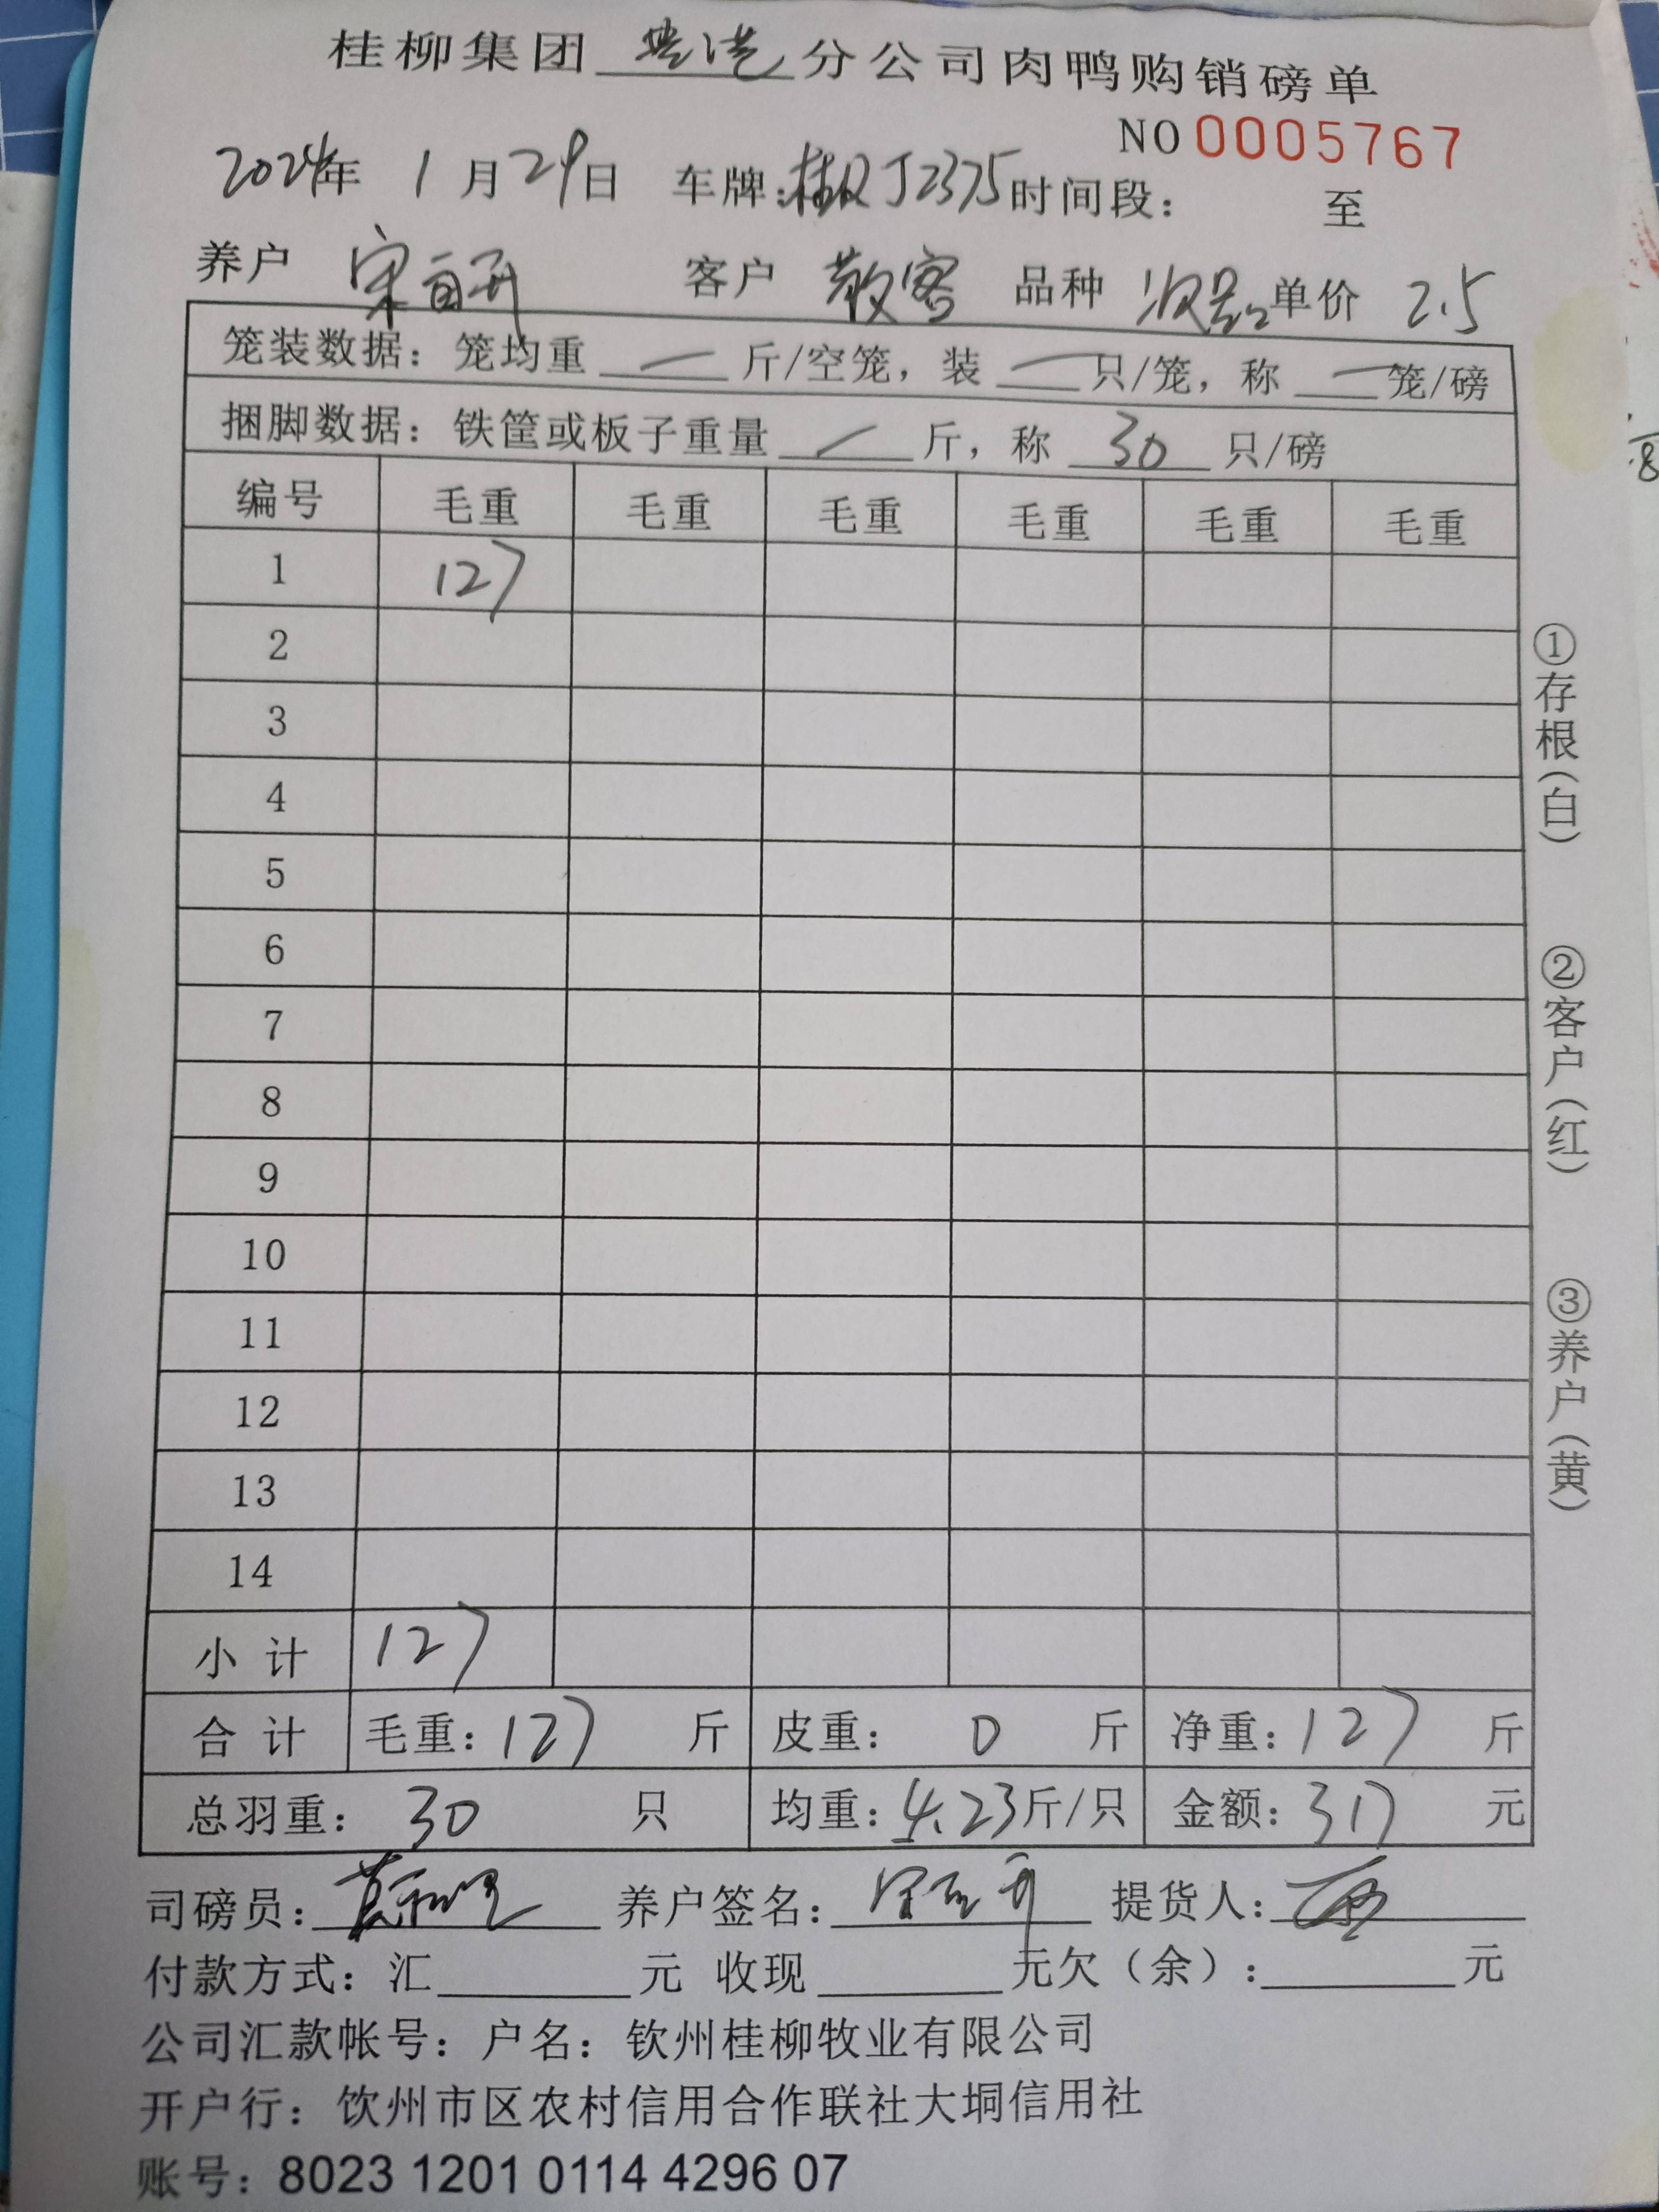 桂柳集团 贵港 分公司肉鸭购销磅单
NO 0005767
2024年 1月29日 车牌:桂RJ2375 时间段: 至
养户 宋 客户 散客 品种 次品 单价 2.5
笼装数据:笼均重 — 斤/空笼,装 — 只/笼,称 — 笼/磅
捆脚数据:铁筐或板子重量 — 斤,称 30 只/磅
编号 毛重 毛重 毛重 毛重 毛重 毛重
1 127
2
3
4
5
6
7
8
9
10
11
12
13
14
小计 127
合计 毛重:127 斤 皮重: 0 斤 净重:127 斤
总羽重: 30 只 均重:4.23斤/只 金额:317 元
司磅员: 养户签名: 提货人:
付款方式:汇 元 收现 元欠(余): 元
公司汇款帐号:户名:钦州桂柳牧业有限公司
开户行:饮州市区农村信用合作联社大垌信用社
账号:8023 1201 0114 4296 07
①存根(白)
②客户(红)
③养户(黄)
8